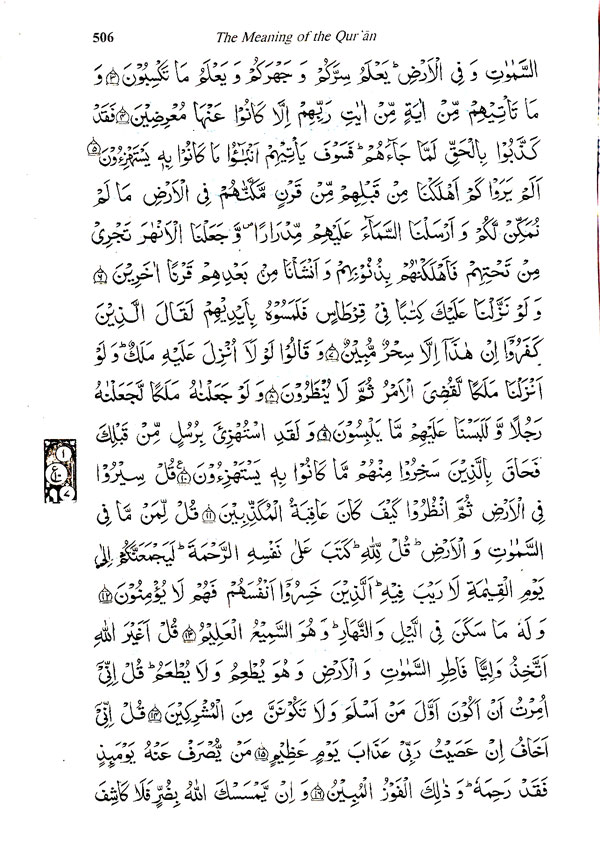 506
The Meaning of the Qur'ān
السَّمٰوٰتِ وَ فِی الْاَرْضِ ؕ یَعْلَمُ سِرَّكُمْ وَ جَهْرَكُمْ وَ یَعْلَمُ مَا تَكْسِبُوْنَ ﴿۳﴾ وَ
مَا تَاْتِیْهِمْ مِّنْ اٰیَةٍ مِّنْ اٰیٰتِ رَبِّهِمْ اِلَّا كَانُوْا عَنْهَا مُعْرِضِیْنَ ﴿۴﴾ فَقَدْ
كَذَّبُوْا بِالْحَقِّ لَمَّا جَآءَهُمْ ؕ فَسَوْفَ یَاْتِیْهِمْ اَنْۢبٰٓؤُا مَا كَانُوْا بِهٖ یَسْتَهْزِءُوْنَ ﴿۵﴾
اَلَمْ یَرَوْا كَمْ اَهْلَكْنَا مِنْ قَبْلِهِمْ مِّنْ قَرْنٍ مَّكَّنّٰهُمْ فِی الْاَرْضِ مَا لَمْ
نُمَكِّنْ لَّكُمْ وَ اَرْسَلْنَا السَّمَآءَ عَلَیْهِمْ مِّدْرَارًا ۪ وَّ جَعَلْنَا الْاَنْهٰرَ تَجْرِیْ
مِنْ تَحْتِهِمْ فَاَهْلَكْنٰهُمْ بِذُنُوْبِهِمْ وَ اَنْشَاْنَا مِنْۢ بَعْدِهِمْ قَرْنًا اٰخَرِیْنَ ﴿۶﴾
وَ لَوْ نَزَّلْنَا عَلَیْكَ كِتٰبًا فِیْ قِرْطَاسٍ فَلَمَسُوْهُ بِاَیْدِیْهِمْ لَقَالَ الَّذِیْنَ
كَفَرُوْۤا اِنْ هٰذَاۤ اِلَّا سِحْرٌ مُّبِیْنٌ ﴿۷﴾ وَ قَالُوْا لَوْ لَاۤ اُنْزِلَ عَلَیْهِ مَلَكٌ ؕ وَ لَوْ
اَنْزَلْنَا مَلَكًا لَّقُضِیَ الْاَمْرُ ثُمَّ لَا یُنْظَرُوْنَ ﴿۸﴾ وَ لَوْ جَعَلْنٰهُ مَلَكًا لَّجَعَلْنٰهُ
رَجُلًا وَّ لَلَبَسْنَا عَلَیْهِمْ مَّا یَلْبِسُوْنَ ﴿۹﴾ وَ لَقَدِ اسْتُهْزِئَ بِرُسُلٍ مِّنْ قَبْلِكَ
فَحَاقَ بِالَّذِیْنَ سَخِرُوْا مِنْهُمْ مَّا كَانُوْا بِهٖ یَسْتَهْزِءُوْنَ ﴿۱۰﴾ قُلْ سِیْرُوْا
فِی الْاَرْضِ ثُمَّ انْظُرُوْا كَیْفَ كَانَ عَاقِبَةُ الْمُكَذِّبِیْنَ ﴿۱۱﴾ قُلْ لِّمَنْ مَّا فِی
السَّمٰوٰتِ وَ الْاَرْضِ ؕ قُلْ لِّلّٰهِ ؕ كَتَبَ عَلٰی نَفْسِهِ الرَّحْمَةَ ؕ لَیَجْمَعَنَّكُمْ اِلٰی
یَوْمِ الْقِیٰمَةِ لَا رَیْبَ فِیْهِ ؕ اَلَّذِیْنَ خَسِرُوْۤا اَنْفُسَهُمْ فَهُمْ لَا یُؤْمِنُوْنَ ﴿۱۲﴾
وَ لَهٗ مَا سَكَنَ فِی الَّیْلِ وَ النَّهَارِ ؕ وَ هُوَ السَّمِیْعُ الْعَلِیْمُ ﴿۱۳﴾ قُلْ اَغَیْرَ اللّٰهِ
اَتَّخِذُ وَلِیًّا فَاطِرِ السَّمٰوٰتِ وَ الْاَرْضِ وَ هُوَ یُطْعِمُ وَ لَا یُطْعَمُ ؕ قُلْ اِنِّیْۤ
اُمِرْتُ اَنْ اَكُوْنَ اَوَّلَ مَنْ اَسْلَمَ وَ لَا تَكُوْنَنَّ مِنَ الْمُشْرِكِیْنَ ﴿۱۴﴾ قُلْ اِنِّیْۤ
اَخَافُ اِنْ عَصَیْتُ رَبِّیْ عَذَابَ یَوْمٍ عَظِیْمٍ ﴿۱۵﴾ مَنْ یُّصْرَفْ عَنْهُ یَوْمَىِٕذٍ
فَقَدْ رَحِمَهٗ ؕ وَ ذٰلِكَ الْفَوْزُ الْمُبِیْنُ ﴿۱۶﴾ وَ اِنْ یَّمْسَسْكَ اللّٰهُ بِضُرٍّ فَلَا كَاشِفَ